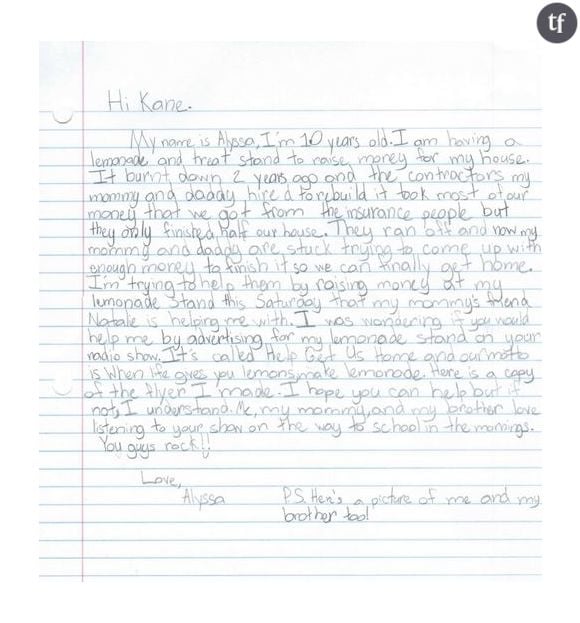 tf
Hi Kane.
My name is Alyssa, I'm 10 years old. I am having a
lemonade and treat stand to raise money for my house.
It burnt down 2 years ago and the contractors my
mommy and daddy hired to rebuild it took most of our
money that we got from the insurance people but
they only finished half our house. They ran off and now my
mommy and daddy are stuck trying to come up with
enough money to finish it so we can finally get home.
I'm trying to help them by raising money at my
lemonade stand this Saturday that my mommy's friend
Natalie is helping me with. I was wondering if you would
help me by advertising for my lemonade stand on your
radio show. It's called Help Get Us Home and our motto
is When life gives you lemons, make lemonade. Here is a copy
of the flyer I made. I hope you can help but if
not, I understand. Me, my mommy, and my brother love
listening to your show on the way to school in the mornings.
You guys rock!!
Love,
Alyssa P.S. Here's a picture of me and my
brother too!